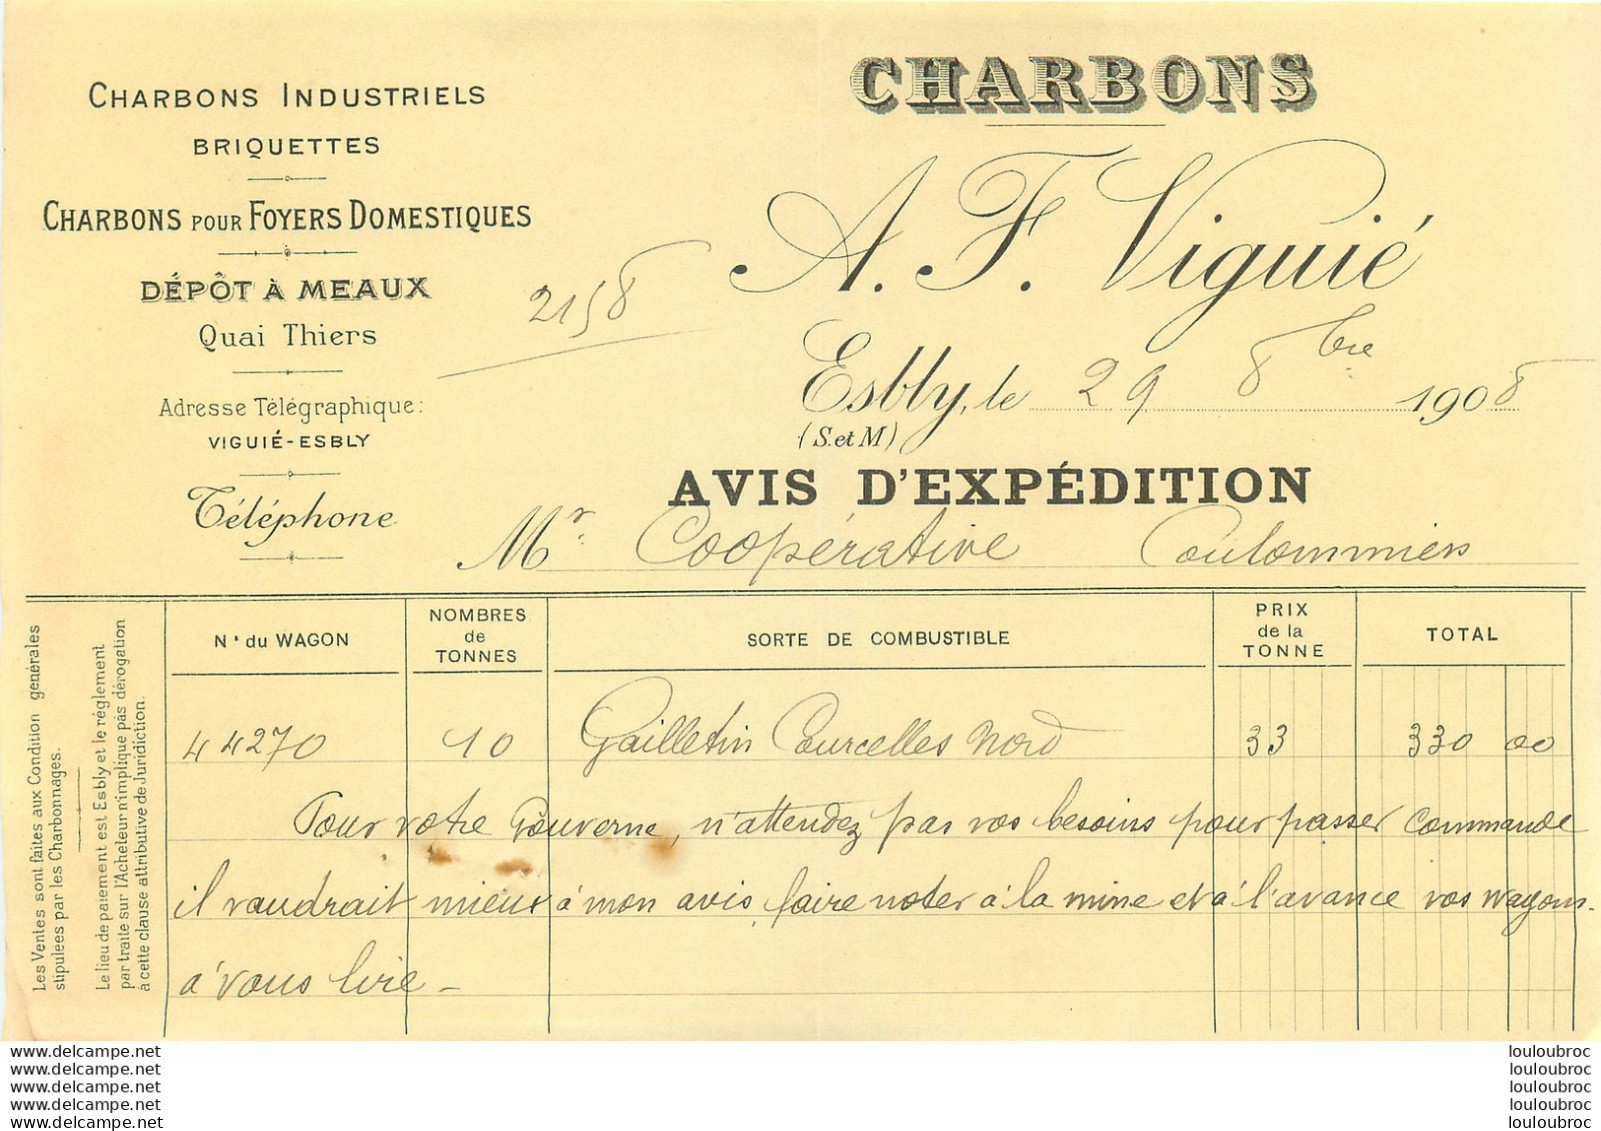 CHARBONS INDUSTRIELS
BRIQUETTES
CHARBONS POUR FOYERS DOMESTIQUES
DÉPÔT À MEAUX
Quai Thiers
Adresse Télégraphique:
VIGUIÉ-ESBLY
Téléphone
2158
CHARBONS
A. F. Viguié
Esbly, le 29 8bre 1908
(S. et M)
AVIS D'EXPÉDITION
Mr. Coopérative Coulommiers
Les Ventes sont faites aux Condition générales
stipulées par les Charbonnages.
Le lieu de paiement est Esbly et le réglement
par traite sur l'Acheteur n'implique pas dérogation
à cette clause attributive de Juridiction.
N° du WAGON NOMBRES de TONNES SORTE DE COMBUSTIBLE PRIX de la TONNE TOTAL
44270 10 Gailletin Courcelles Nord 33 330 00
Pour votre Gouverne, n'attendez pas vos besoins pour passer commande
il vaudrait mieux à mon avis faire noter à la mine et à l'avance vos wagons.
à vous lire -
www.delcampe.net
www.delcampe.net
www.delcampe.net
www.delcampe.net
www.delcampe.net
louloubroc
louloubroc
louloubroc
louloubroc
louloubroc